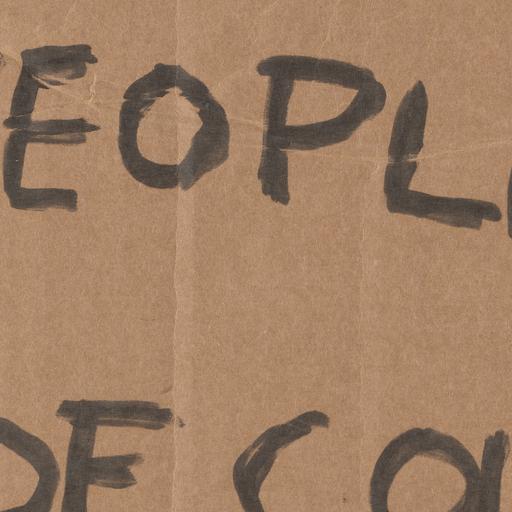 EOPL
OF CO